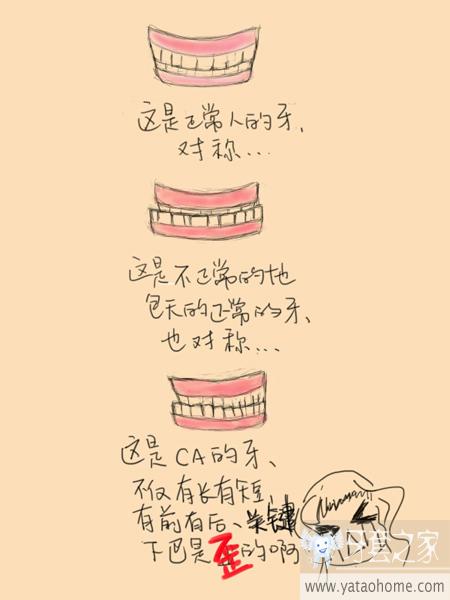 这是正常人的牙、
对称...
这是不正常的地
包天的正常的牙、
也对称...
这是CA的牙、
不仅有长有短、
有前有后、关键
下巴是歪的啊
牙套之家
www.yataohome.com